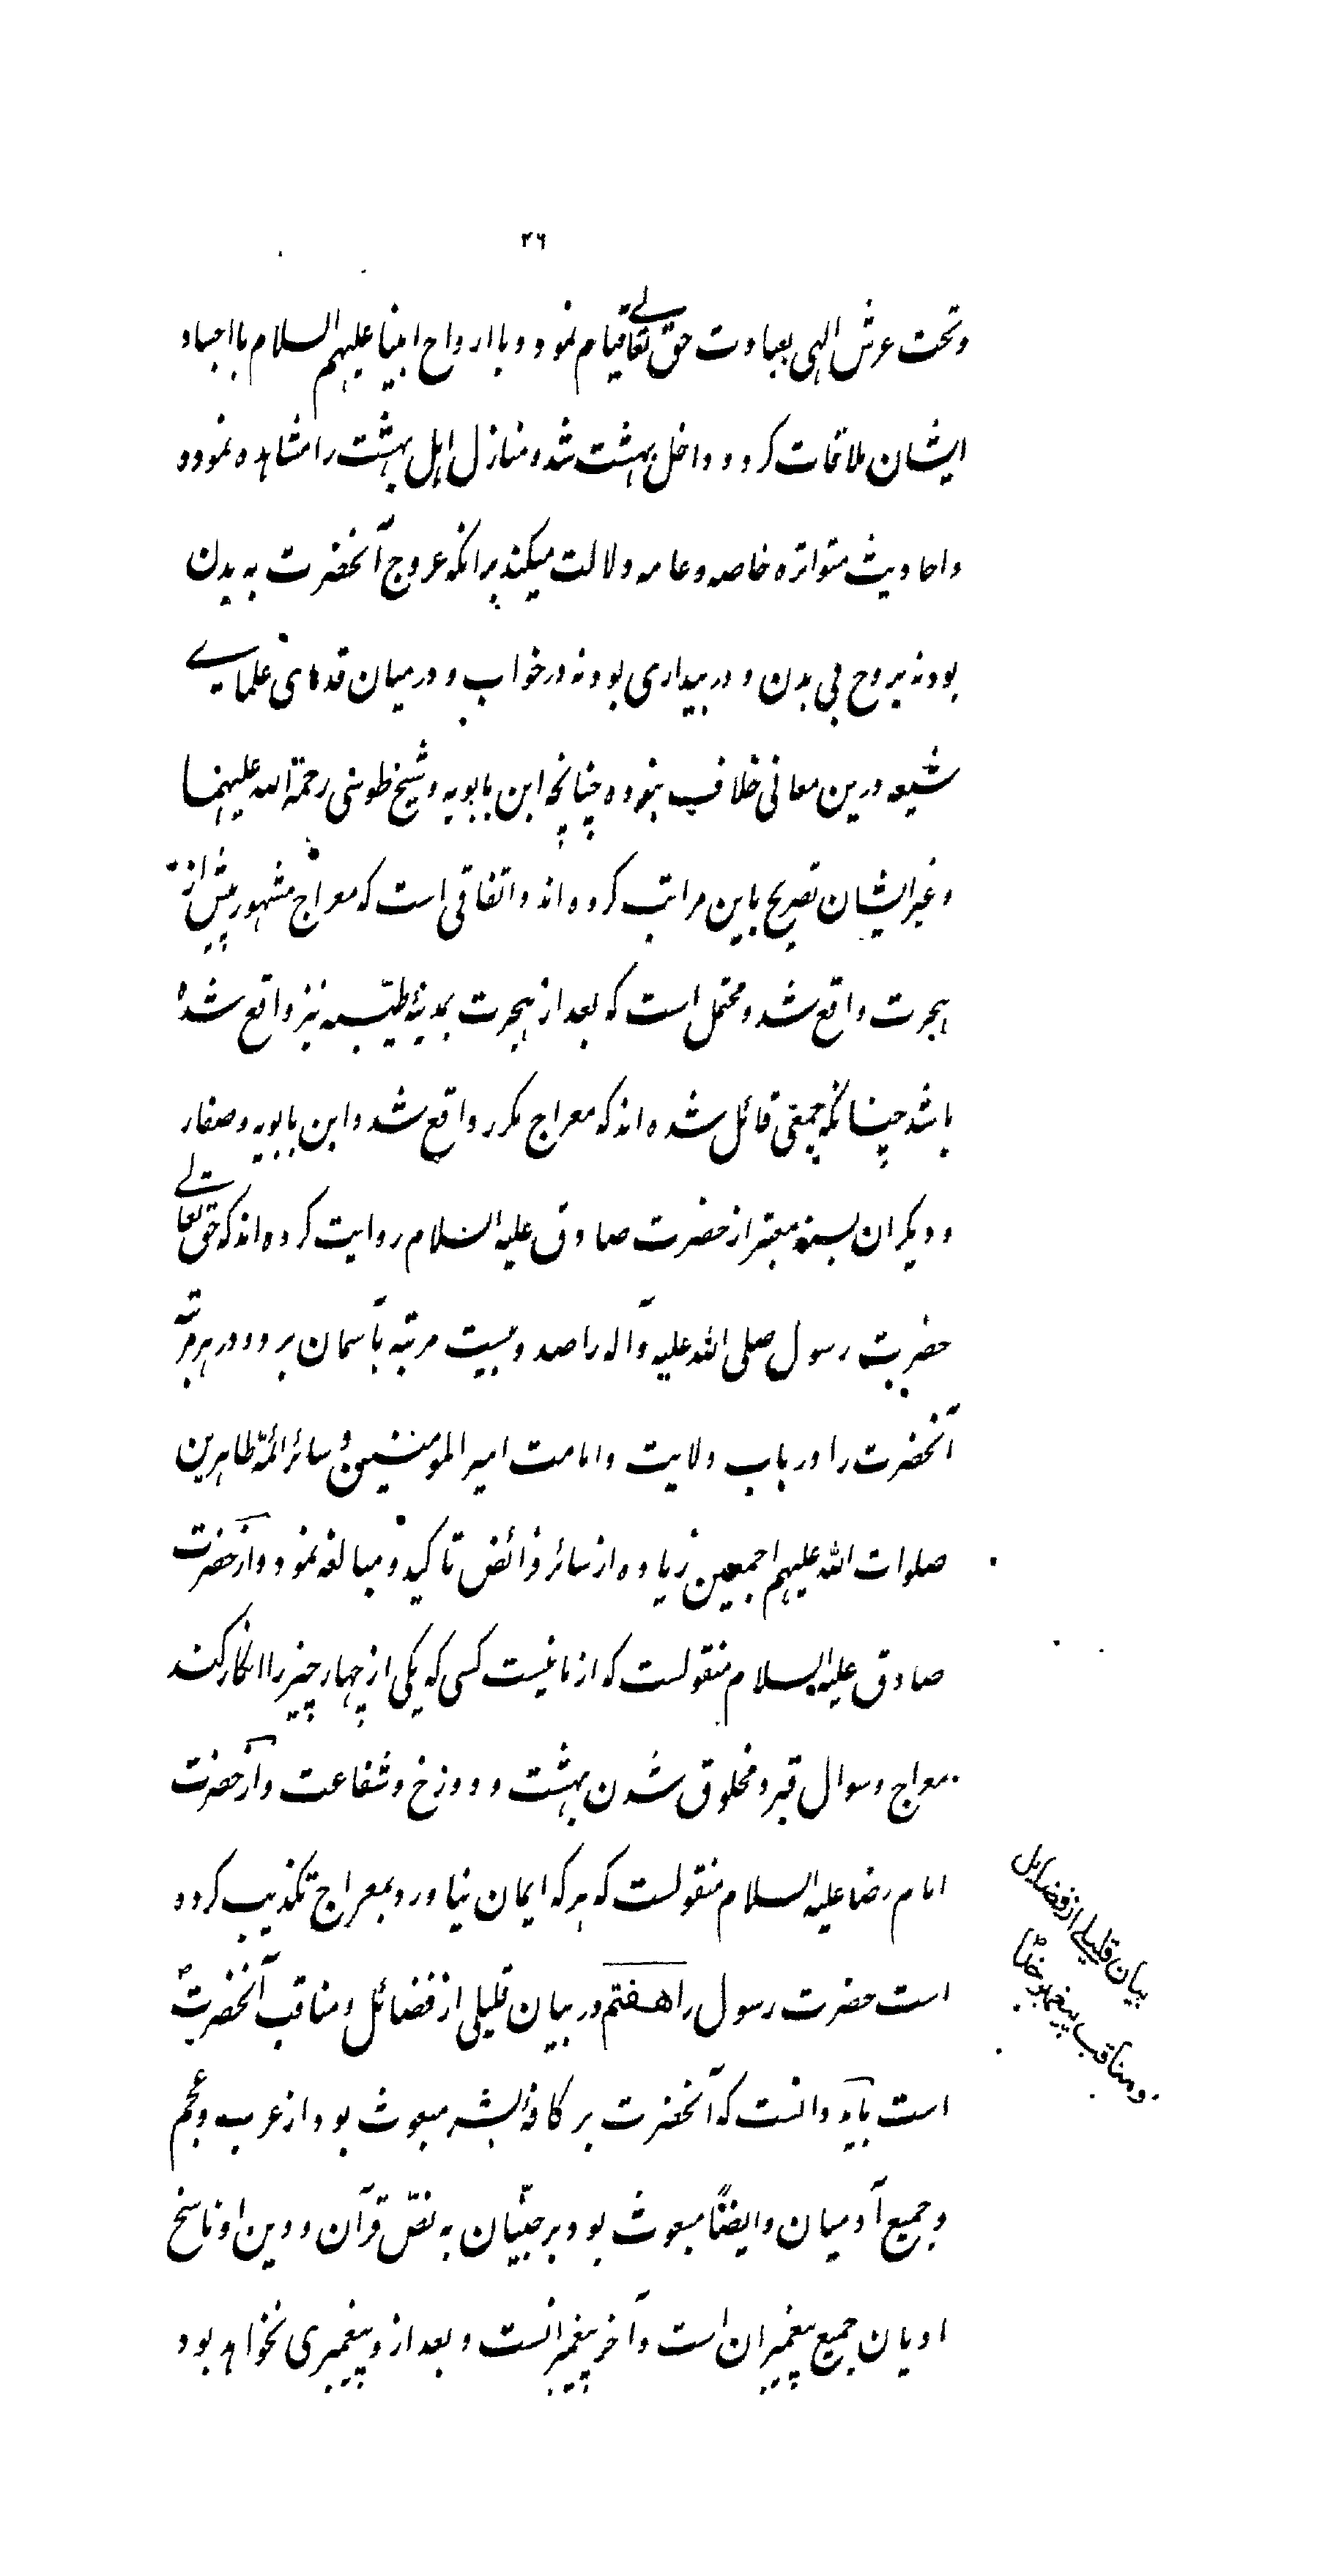 ۴۶
وتحت عرش الهی بعبادت حق تعالے قیام نمود و با ارواح انبیا علیهم السلام با اجساد
ایشان ملاقات کرد و داخل بهشت شد و منازل اهل بهشت را مشاهده نمود و
واحادیث متواتره خاصه و عامه دلالت میکند برانکه عروج آنحضرت به بدن
بود نه بروح بی بدن و در بیداری بود نه در خواب و در میان قدمای علماے
شیعه درین معانی خلاف نبوده چنانچه ابن بابویه و شیخ طوسی رحمة الله علیهما
و غیر ایشان تصریح باین مراتب کرده اند و اتفاقی است که معراج مشهور پیش از
هجرت واقع شد و محتمل است که بعد از هجرت بمدینۀ طیّبه نیز واقع شده
باشد چنانکه جمعی قائل شده اند که معراج مکرر واقع شد و ابن بابویه و صفار
و دیگران بسند معتبر از حضرت صادق علیه السلام روایت کرده اند که حق تعالے
حضرت رسول صلی الله علیه وآله را صد و بیست مرتبه بآسمان برد و در هر مرتبه
آنحضرت را در باب ولایت و امامت امیر المومنین و سائر ائمۀ طاهرین
صلوات الله علیهم اجمعین زیاده از سائر فرائض تاکید و مبالغه نمود و از حضرت
صادق علیه السلام منقولست که از ما نیست کسی که یکی از چهار چیز را انکار کند
معراج و سوال قبر و مخلوق شدن بهشت و دوزخ و شفاعت و از حضرت
امام رضا علیه السلام منقولست که هر که ایمان نیاورد بمعراج تکذیب کرده
است حضرت رسول را هفتم در بیان قلیلی از فضائل و مناقب آنحضرت
است باید دانست که آنحضرت بر کافۀ بشر مبعوث بود از عرب و عجم
و جمیع آدمیان و ایضًا مبعوث بود بر جنّیان به نصّ قرآن و دین او ناسخ
ادیان جمیع پیغمبران است و آخر پیغمبرانست و بعد از و پیغمبری نخواهد بود
بیان قلیلے از فضایل
و مناقب پیغمبر خدا